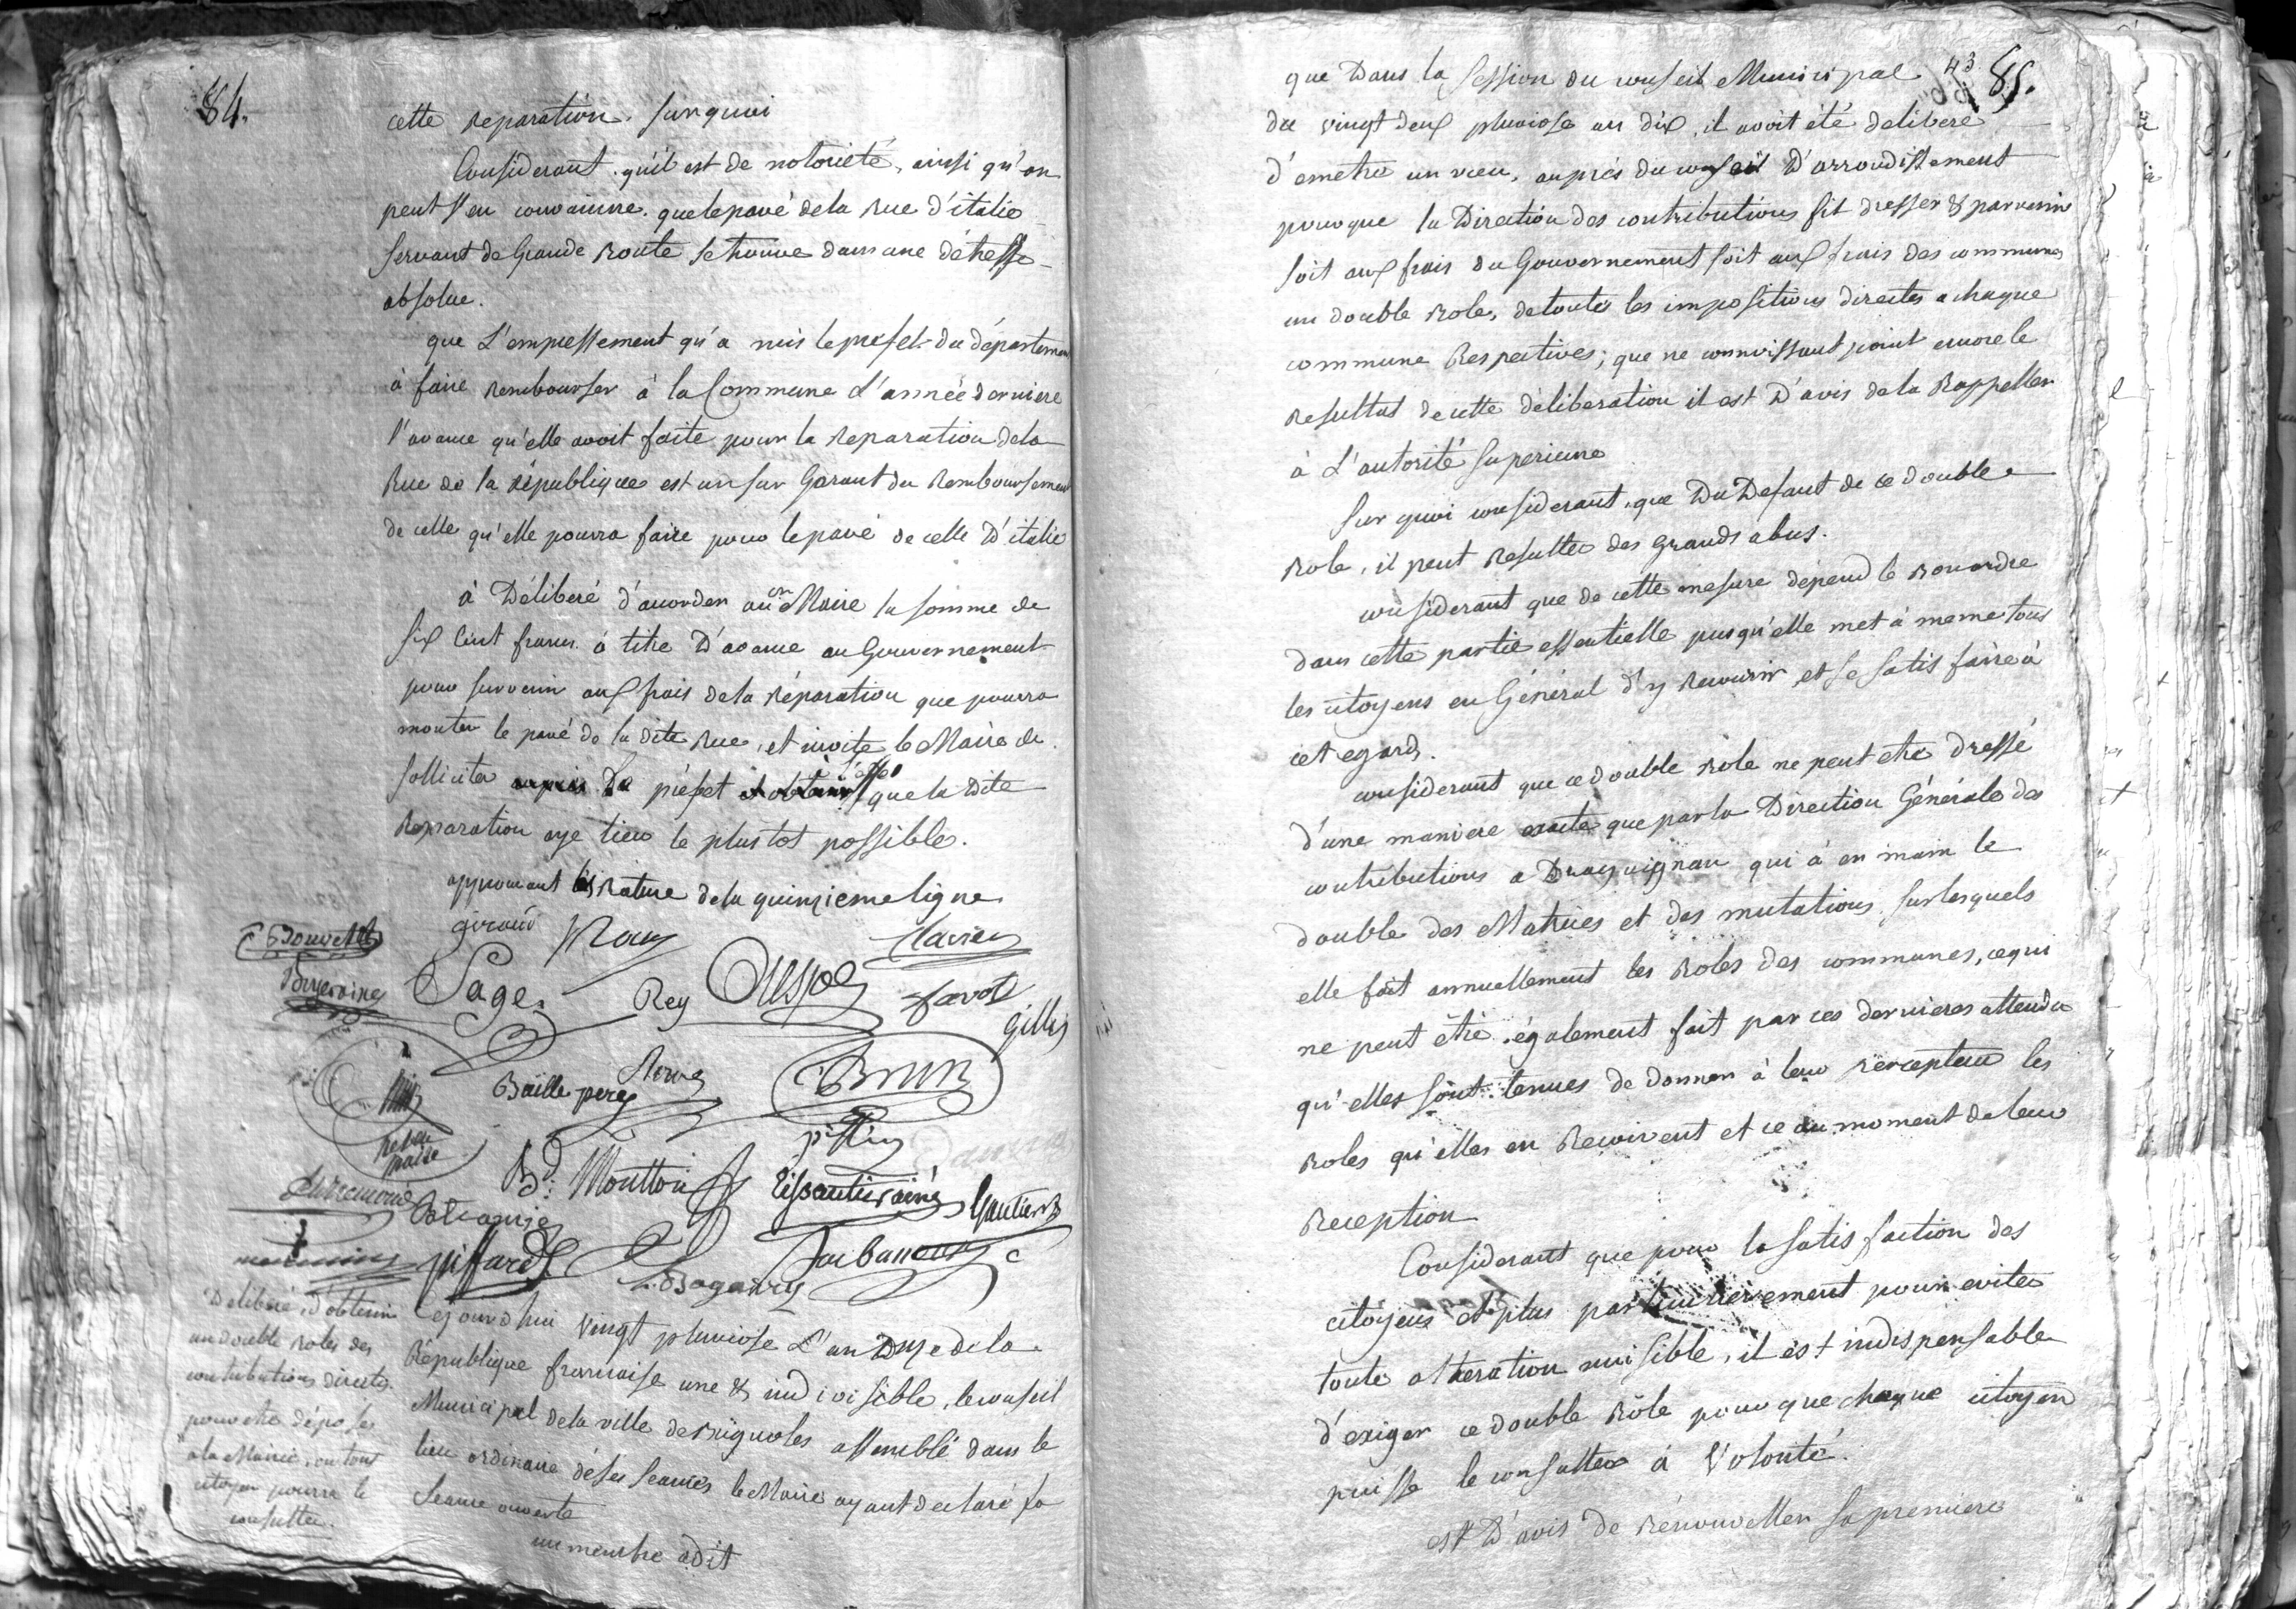 84.
cette reparation. surquoi
Considerant. qu'il est de notorieté, ainsi qu'on
peut s'en convaincre. que le pavé de la Rue d'italie
servant de Grande Route se trouve dans une détresse
absolue.
que L'empressement qu'a mis le prefet du département
à faire rembourser à la Commune L'année derniere
l'avance qu'elle avoit faite pour la reparation de la
Rue de la république est un sur Garant du remboursement
de celle qu'elle pourra faire pour le pavé de celle D'italie
à Déliberé d'accorder au Maire la somme de
six Cent francs à titre D'avance au Gouvernement
pour survenir aux frais de la réparation que pourra
monter le pavé de la dite Rue, et invite le Maire de
solliciter le préfet à l'effet que la dite
Reparation aye lieu le plustot possible.
approuvant la Rature de la quinzieme ligne
giraud
Sage
Rey
favot
Gilles
Baille pere
Brun
Bd: Moutton
Gautier
piffard
Deliberé d'obtenir
un double roles des
contributions directes
pour etre déposés
a la Mairie, ou tout
citoyen pourra le
consulter.
Cejourdhui vingt pluviose L'an Onze de la
République francaise une & indivisible, le conseil
Municipal de la ville de Brignoles assemblé dans le
lieu ordinaire de ses seances le Maire ayant declaré la
Seance ouverte
un membre a dit
43
85.
que Dans la session du conseil Municipal
du vingt deux pluviose an dix, il avoit été deliberé
d'emetre un vœu, auprés du conseil D'arrondissement
pour que la Direction des contributions fit dresser & parvenir
soit aux frais du Gouvernement soit aux frais des communes
un double Role, de toutes les impositions directes a chaque
commune Respectives; que ne connoissant point encore le
Resultat de cette déliberation il est D'avis de la Rappeller
à L'autorité superieure
Sur quoi considerant, que Du Defaut de ce double
Role, il peut Resulter des grands abus.
considerant que de cette mesure dépend le bon ordre
dans cette partie essentielle puisqu'elle met à meme tous
les citoyens en Général d'y Recourir et se satisfaire à
cet egard.
considerant que ce double Role ne peut etre dressé
d'une maniere exacte que par la Direction Générale des
contributions a Draguignan qui à en main le
double des Matrices et des mutations sur lesquels
elle fait annuellement les Roles des communes, ce qui
ne peut être également fait par ces dernieres attendu
qu'elles sont tenues de donner à leur percepteur les
Roles qu'elles en Recoivent et ce au moment de leur
Reception
Considerant que pour la satisfaction des
citoyens et plus particulierement pour eviter
toute alteration nuisible, il est indispensable
d'exiger ce double Rôle pour que chaque citoyen
puisse le consulter à Volonté.
est D'avis de Rénouveller sa premiere